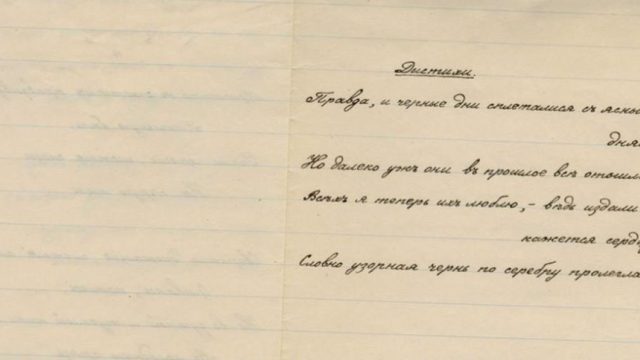 Дистихи.
Правда, и черные дни сплеталися съ ясны
дня
Но далеко ужъ они въ прошлое всѣ отошл
Всѣхъ я теперь ихъ люблю,- вѣдь издали
кажется серд
Словно узорная чернь по серебру пролегла